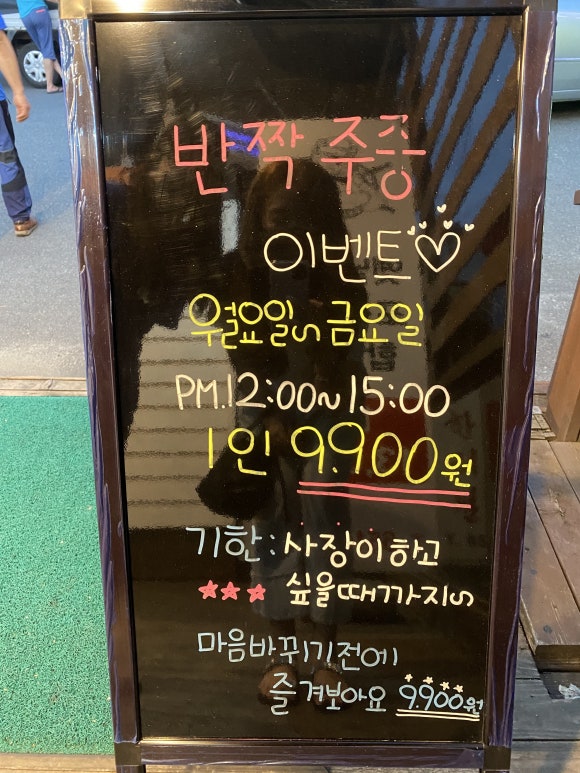 반짝 주중
이벤트
월요일~금요일
PM.12:00~15:00
1인 9.900원
기한: 사장이하고
싶을때까지~
마음바뀌기전에
즐겨보아요 9.900원